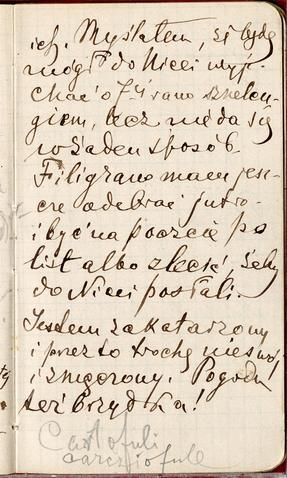 ich. Myślałem, iż będę
mógł do Nicei wyje-
chać o 7¼ rano
giem, lecz nie da się
w żaden sposób.
Filigrano mam jesz-
cze odebrać jutro
i być na poczcie po
list albo zlecić, żeby
do Nicei posłali.
Jestem zakatarzony
i przez to trochę nieswój
i zmęczony. Pogoda
też brzydka!
Cartofuli
carciofule